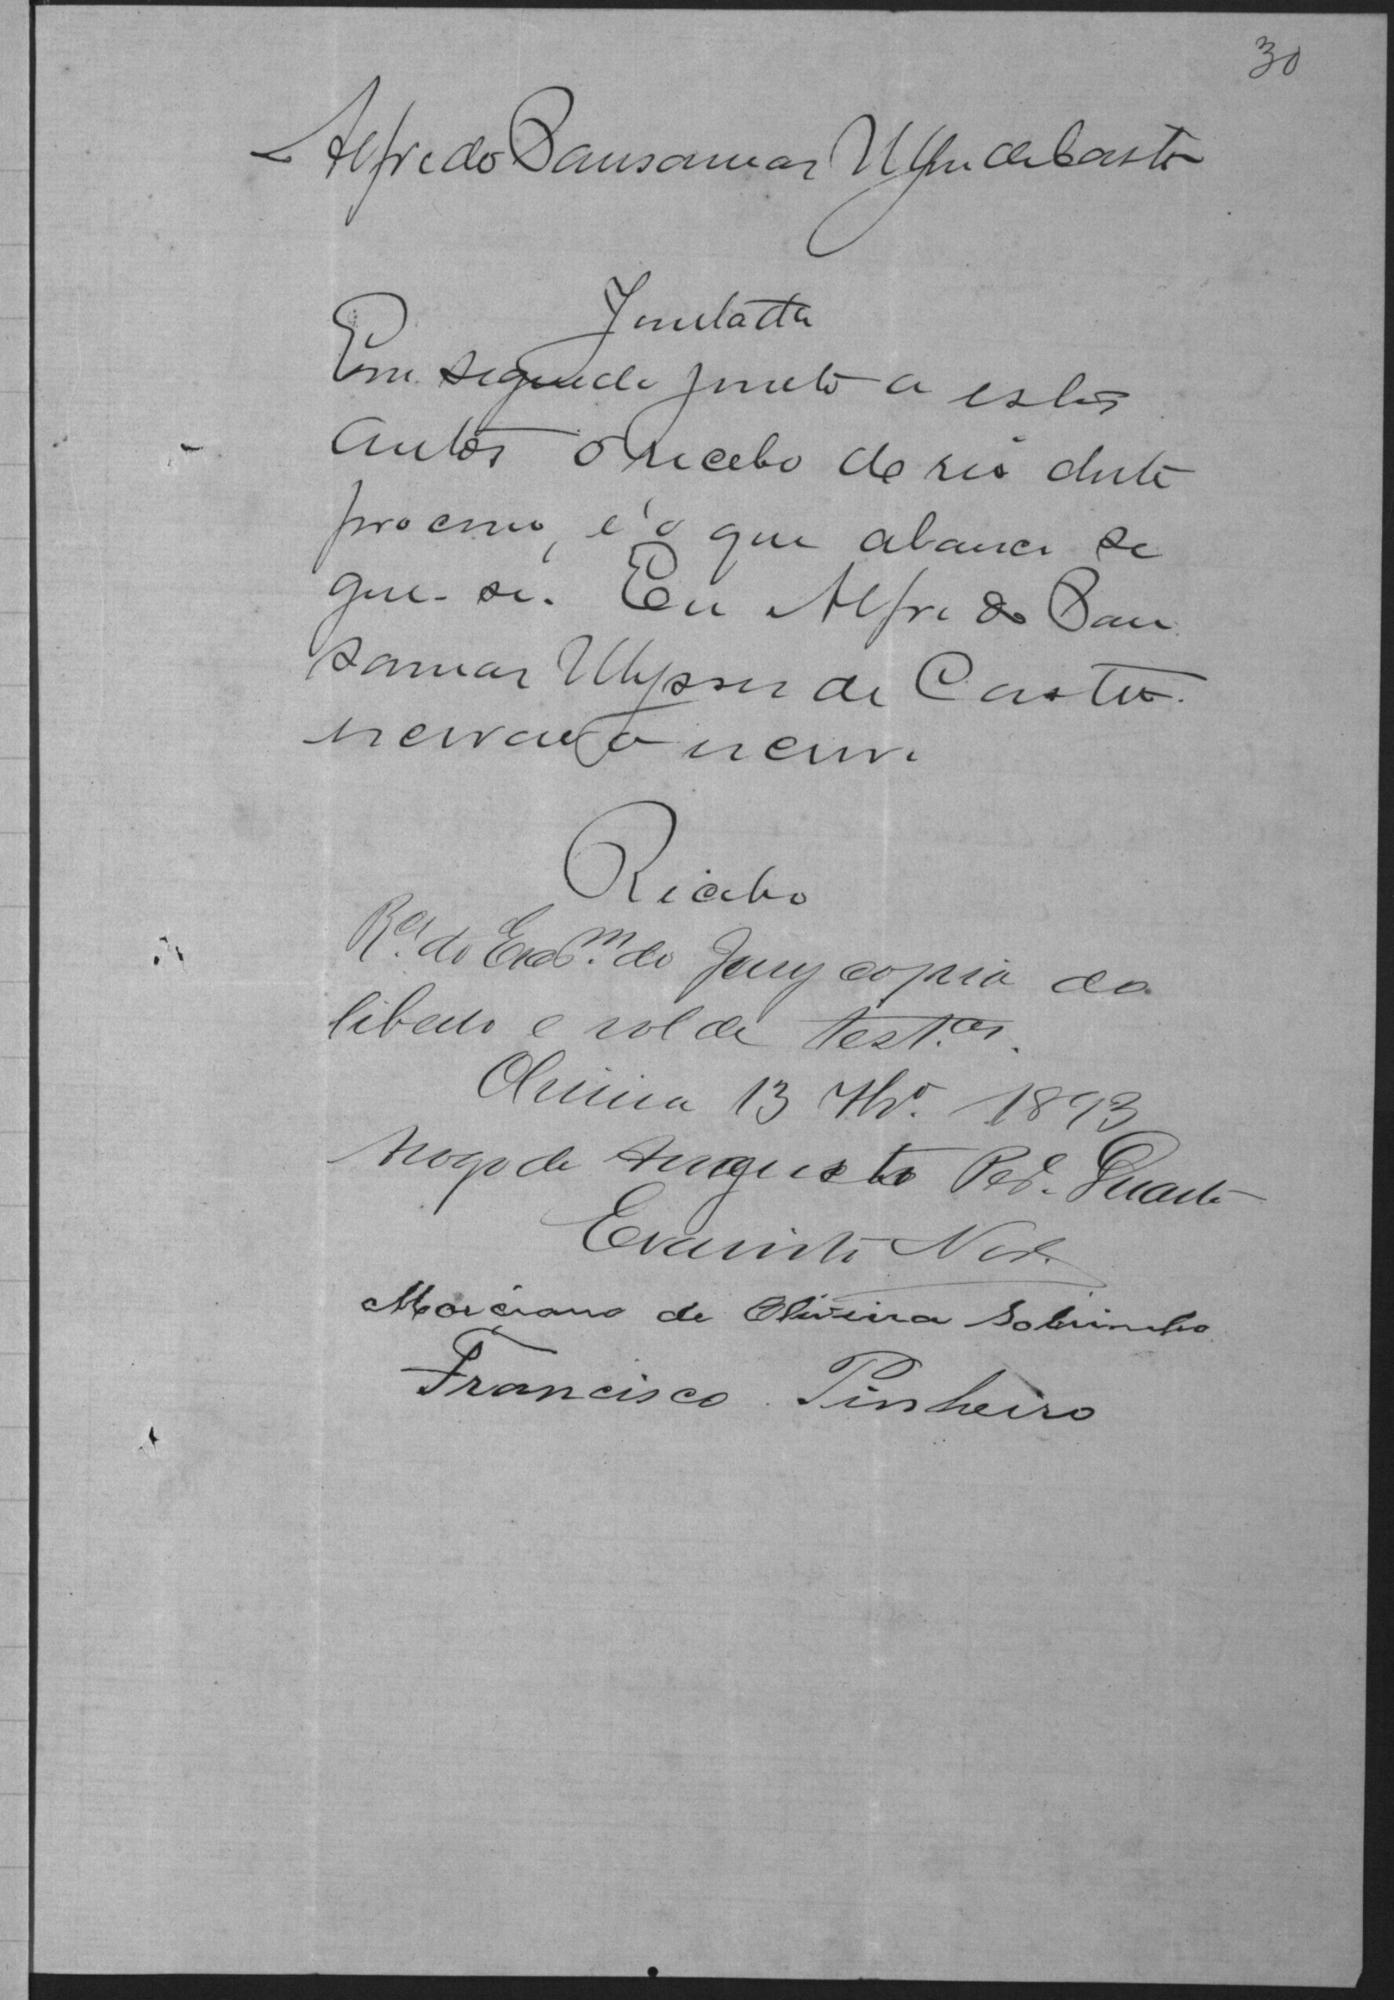 30
Alfredo Pausamar Ulysses de Castro
Juntada
Em seguida junto a estes
autos o recebo do réo deste
processo, é o que abaixo se
gue-se. Eu Alfredo Pau
samar Ulysses de Castro
escrivão escrevi
Recebo
R.ei do Escr.m do Jury copia do
libello e rol de test.as.
13 7br.o 1893
A rogo de Augusto Per.a Duarte
Evaristo
Marciano de Oliveira Sobrinho
Francisco Pinheiro